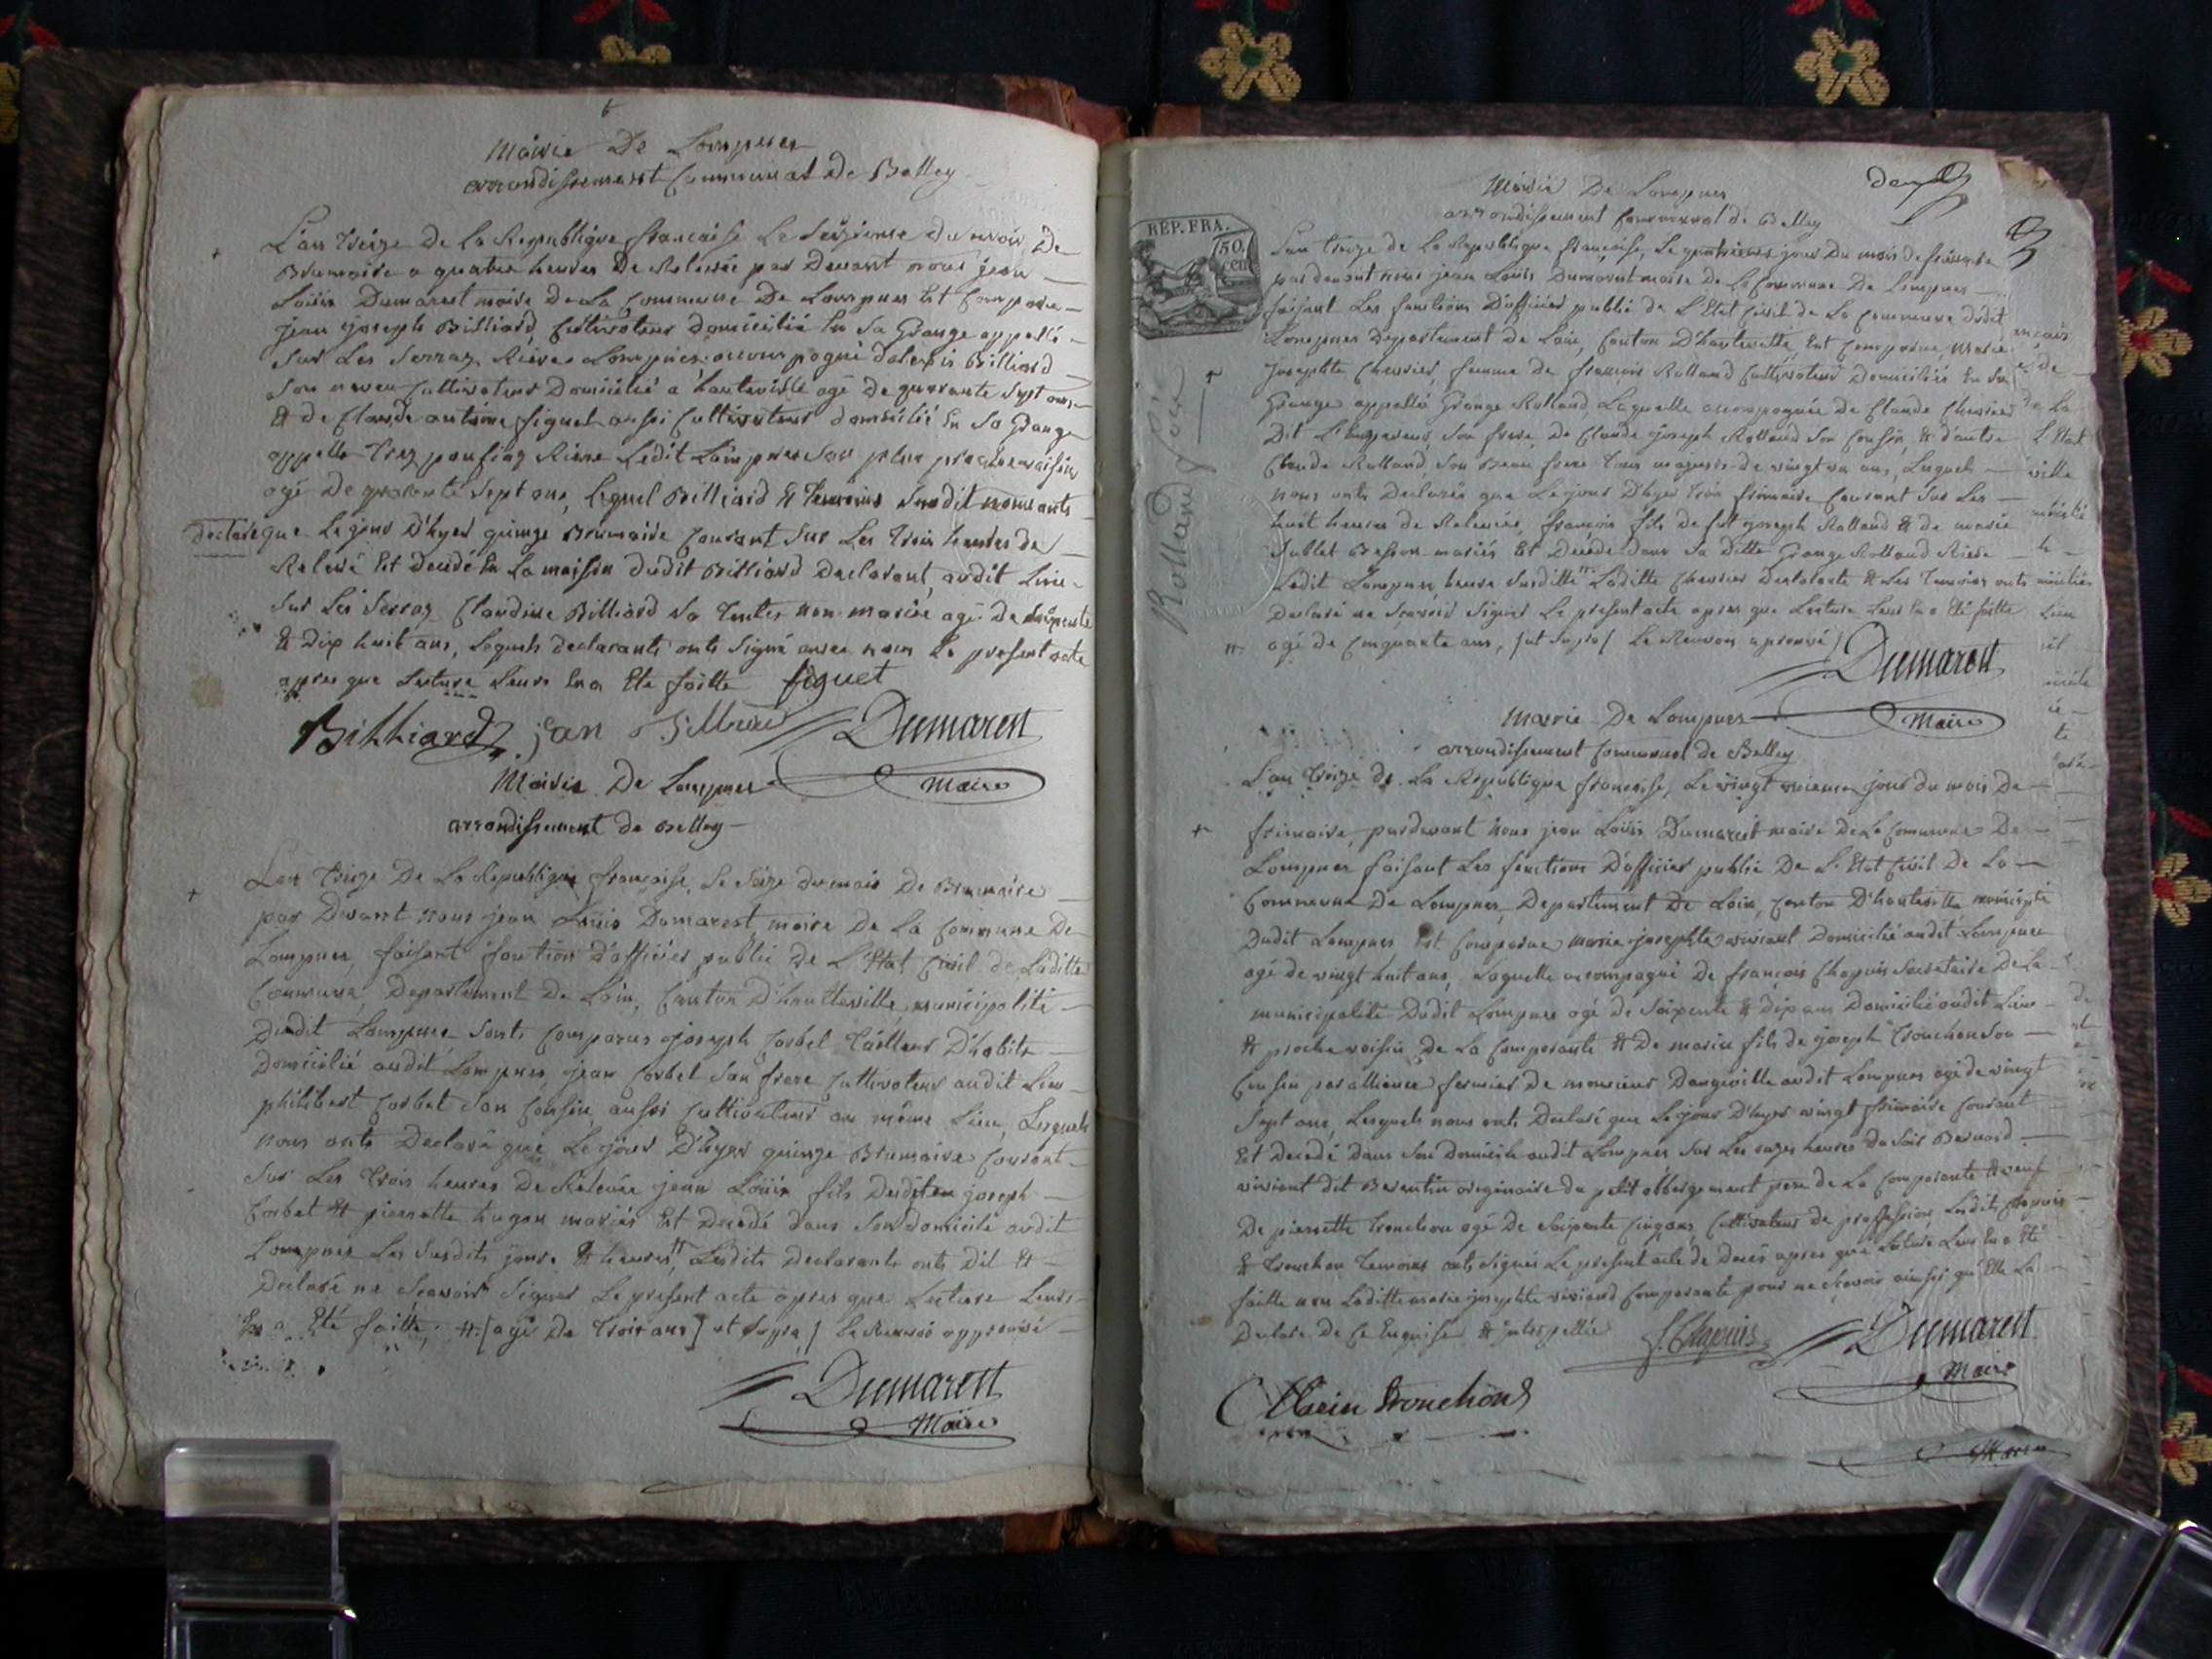 Mairie De Lompnes
arrondissement Communal De Belley
L'an treize De la Republique francaise Le seizieme du mois De
Brumaire a quatre heures De Relevée par Devant nous jean
Loüis Dumarest maire De La Commune De Lompnes Est Comparu
jean joseph Billiard, Cultivateur domicilié En sa Grange appellé
Sur Les Serraz Riere Lompnes accompagné d'alexis Billiard
Son neveu Cultivateur Domicilié a hauteville agé De quarante Sept ans
& de Claude antoine figuet aussi Cultivateur domicilié En Sa Grange
appellé Riere Ledit Lompnes Son plus proche voisin
agé De quarante Sept ans, Lequel Billiard & Temoins Susdit nous onts
declaré que Le jour D'hyer quinze Brumaire Courant Sur Les Trois heures de
Relevé Est Decedé En La maison dudit Billiard Declarant, audit Lieu
Sur Les Serraz Claudine Billiard Sa Tante non mariée agé De Soixante
& Dix huit ans, Lequels declarants onts Signé avec nous Le present acte
apres que Lecture Leurs En a Eté faitte figuet
Billiard jean Billiard Dumarest
Maire
Mairie De Lompnes
arrondissement de Belley
L'an Treize De La Republique francaise, Le Seize du mois De Brumaire
par Devant nous jean Loüis Dumarest maire De La Commune De
Lompnes, faisant fonction D'officier public De L'Etat Civil de Laditte
Commune, Departement De Lain, Canton D'hautteville, municipalité
Dudit Lompnes Sonts Comparus joseph Corbet Tailleur D'habits
Domicilié audit Lompnes, jean Corbet Son frere Cultivateur audit Lieu
philibert Corbet Son Cousin, aussi Cultivateur au même Lieu, Lesquels
nous onts Declaré que Le jour D'hyer quinze Brumaire Courant
Sur Les Trois heures De Relevée jean Loüis fils Dudit joseph
Corbet & pierrette hugon mariés Est Decedé dans Son domicile audit
Lompnes Les Susdits jours & heures #, Lesdits Declarants onts Dit &
Declaré ne Scavoir Signer Le present acte apres que Lecture Leurs
En a Eté faitte. #. [agé De Trois ans] ut supra / Le Renvoi approuvé
Dumarest
Maire
deux
Mairie De Lompnes
arrondissement Communal de Belley
RÉP. FRA.
50 cent
L'an treize de La Republique française, Le quatrieme jour Du mois de frimaire
par devant nous jean Loüis Dumarest maire De La Commune De Lompnes
faisant Les fonctions D'officier public de L'Etat Civil de La Commune Dudit
Lompnes Departement de Lain, Canton D'hauteville, Est Comparue, Marie
josephte Chevrier, femme de françois Rolland Cultivateur Domiciliés En Sa
Grange appellé Grange Rolland Laquelle accompagnée de Claude Chevrier
Dit L'empereur Son frere, De Claude joseph Rolland Son Cousin, & d'autre
Claude Rolland, Son Beau frere Tous majeurs de vingt un ans, Lequels
nous onts Declarés que Le jour D'hyer trois frimaire Courant Sur Les
huit heures de Relevées, françois fils de fut joseph Rolland & de marie
Sublet Besson mariés Est Decedé Dans Sa ditte Grange Rolland Riere
Ledit Lompnes heure Susditte #. Laditte Chevrier Declarante & Les Temoins onts
Declaré ne Scavoir Signer Le present acte apres que Lecture Leur En a Eté faitte
#. agé de Cinquante ans, / ut Supra / Le Renvoi approuvé /
Rolland
Dumarest
Maire
Mairie De Lompnes
arrondissement Communal de Belley
L'an Treize de La Republique francaise, Le vingt unieme jour du mois De
frimaire, pardevant nous jean Loüis Dumarest maire De La Commune De
Lompnes faisant Les fonctions D'officier public De L'Etat Civil De La
Commune De Lompnes Departement De Lain, Canton D'hauteville
Dudit Lompnes Est Comparue marie josephte vivient Domicilié audit Lompnes
agé de vingt huit ans, Laquelle accompagné De françois Chapuis Secretaire De La
municipalité Dudit Lompnes agé de Soixante & Dix ans Domicilié audit Lieu
& proche voisin De La Comparante & De marin fils de joseph Tronchon Son
Cousin par alliance fermier De monsieur Dangeville audit Lompnes agé de vingt
Sept ans, Lesquels nous onts Declaré que Le jour D'hyer vingt frimaire Courant
Est Decedé Dans Son Domicile audit Lompnes Sur Les onze heures Du Soir Bernard
vivient dit originaire du petit abbergement pere de La Comparante & veuf
De pierrette Tronchon agé De Soixante Cinq ans, Cultivateur de proffession, Lesdits Chapuis
& Tronchon Temoins onts Signés Le present acte de Decés apres que Lecture Leur En a Eté
faitte non Laditte marie josephte viviend Comparante pour ne Scavoir ainssi qu'Elle La
Declaré De Ce Enquise & interpellée f. Chapuis Dumarest
Maire
Marin Tronchond